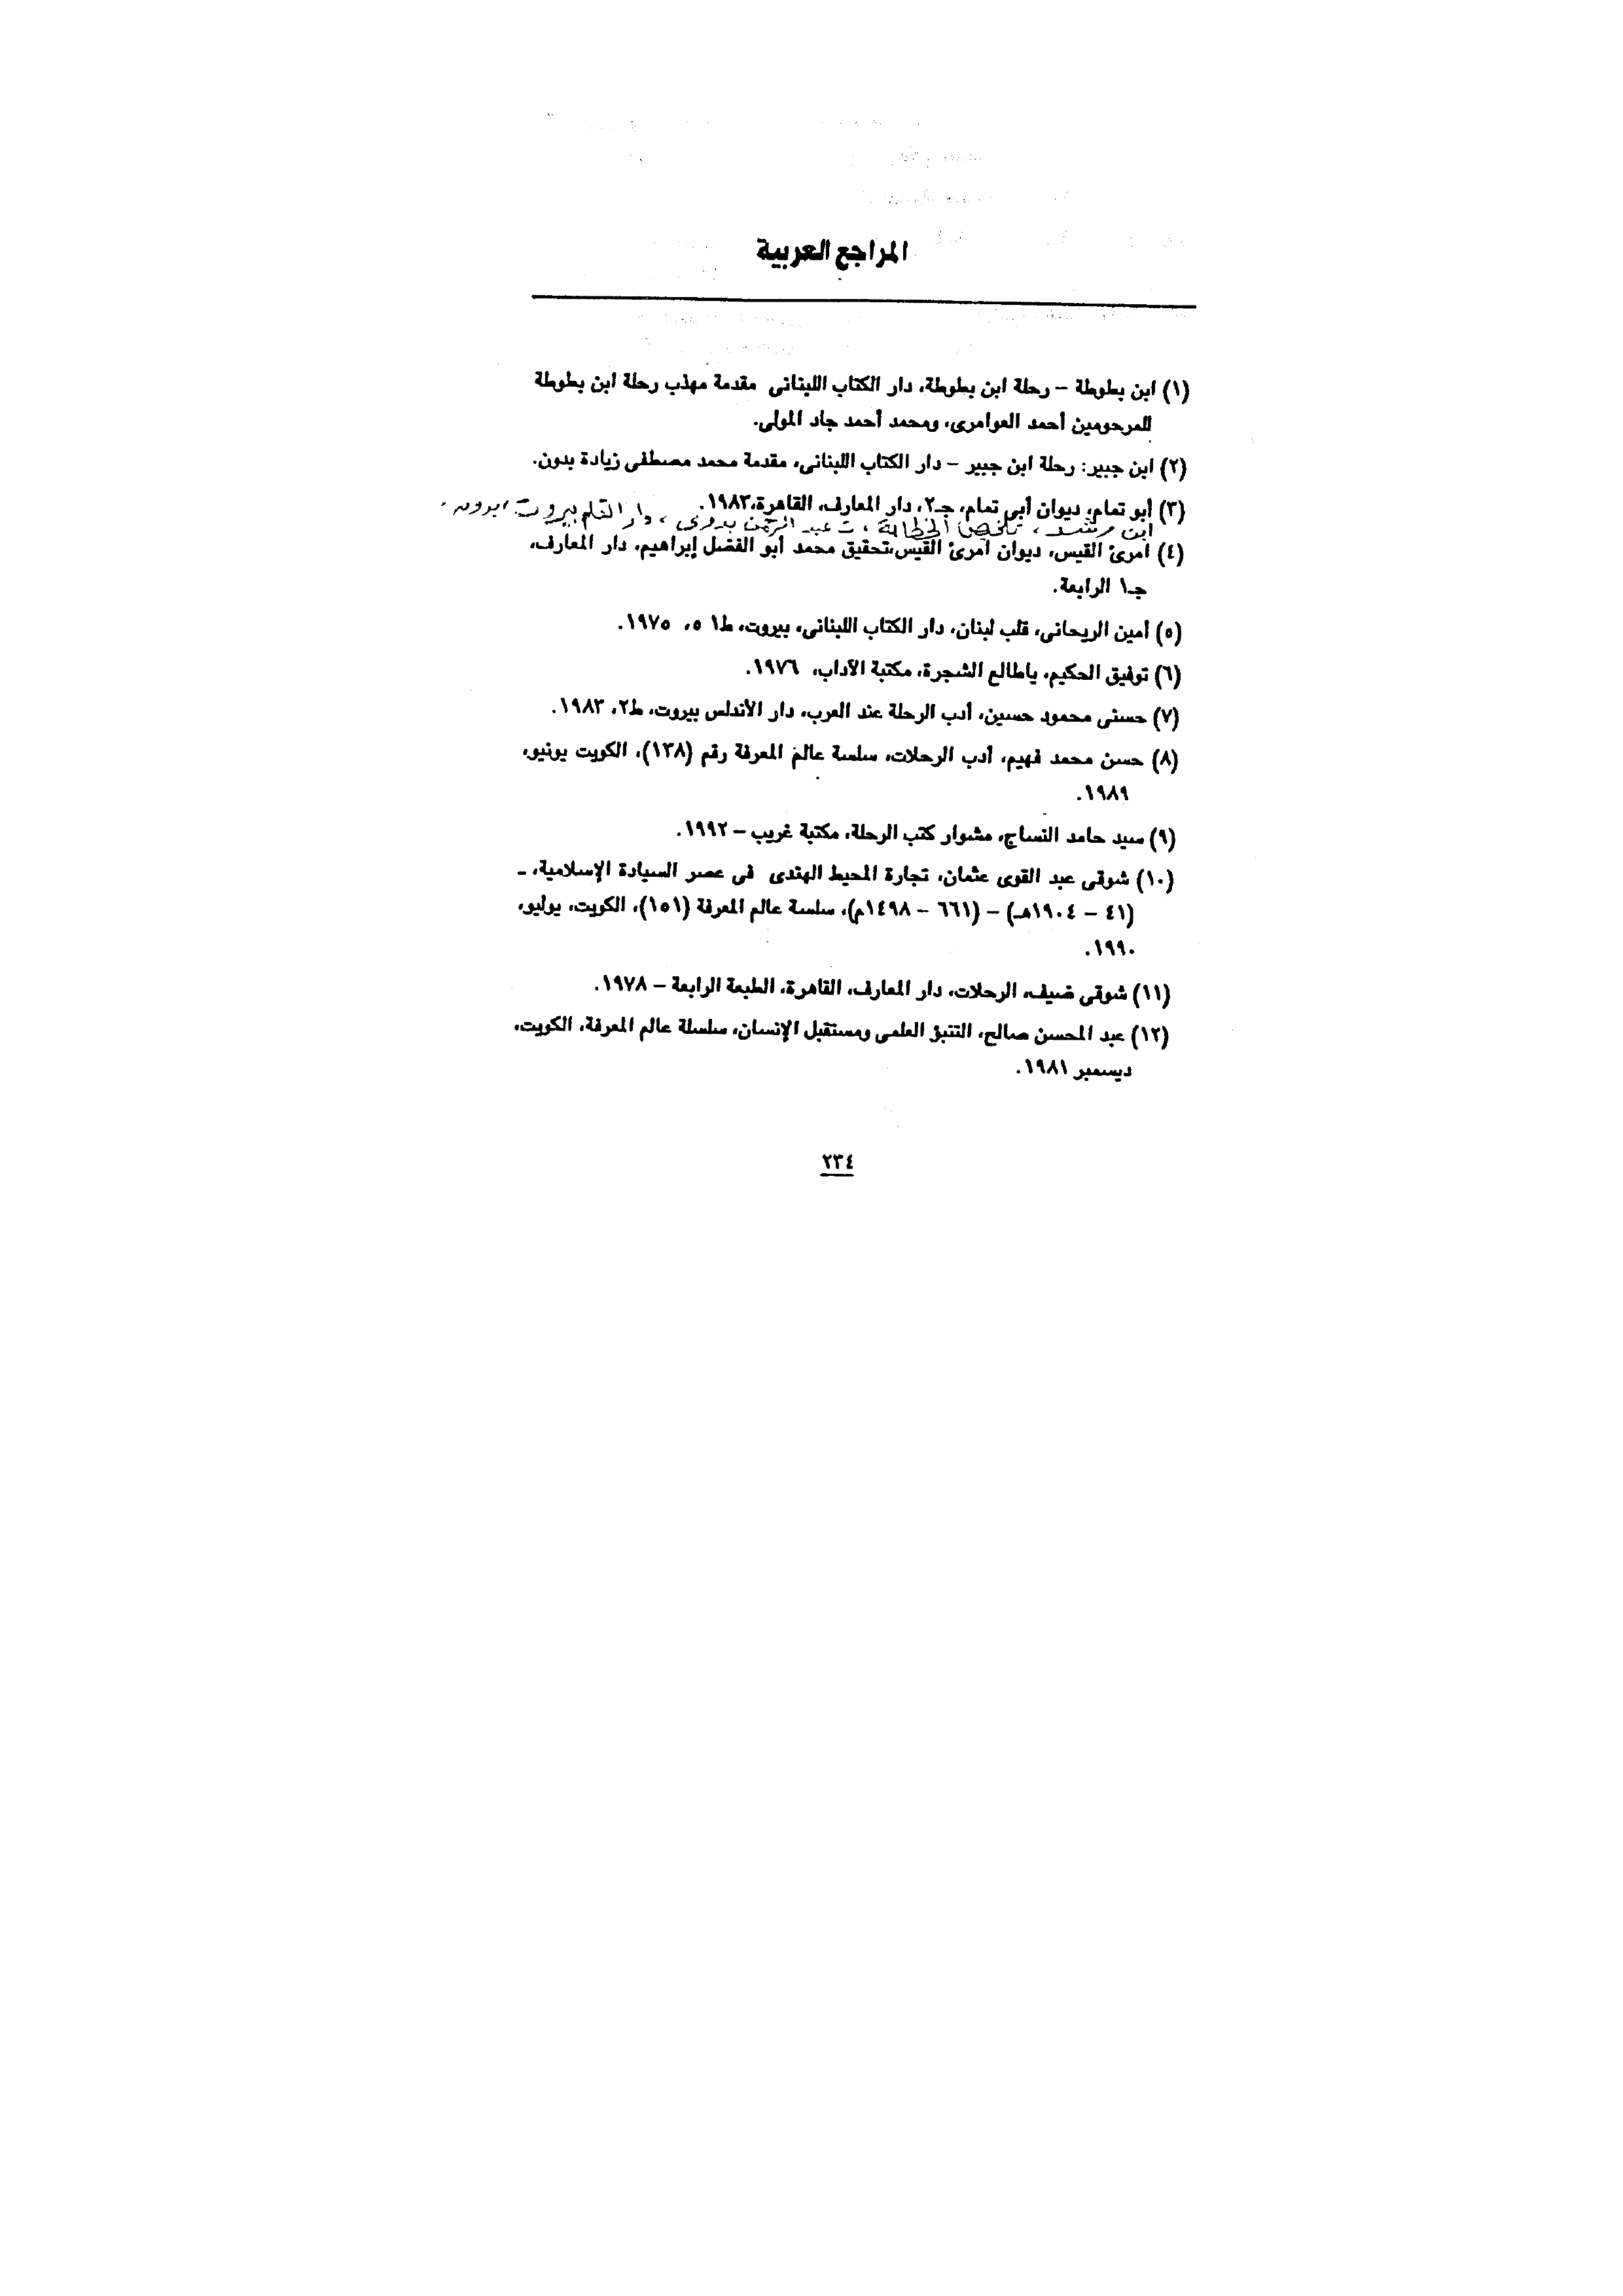 المراجع العربية
(١) ابن بطوطة – رحلة ابن بطوطة، دار الكتاب اللبنانى مقدمة مهذب رحلة ابن بطوطة
للمرحومين أحمد العوامرى، ومحمد أحمد جاد المولى.
(٢) ابن جبير: رحلة ابن جبير – دار الكتاب اللبنانى، مقدمة محمد مصطفى زيادة بدون.
(٣) أبو تمام، ديوان أبى تمام، جـ٢، دار المعارف، القاهرة،١٩٨٣.
ابن رشد، تلخيص الخطابة، ت عبد الرحمن بدوى، دار القلم بيروت، بدون.
(٤) امرئ القيس، ديوان امرئ القيس،تحقيق محمد أبو الفضل إبراهيم، دار المعارف،
جـ١ الرابعة.
(٥) أمين الريحانى، قلب لبنان، دار الكتاب اللبنانى، بيروت، ط١ ٥، ١٩٧٥.
(٦) توفيق الحكيم، ياطالع الشجرة، مكتبة الآداب، ١٩٧٦.
(٧) حسنى محمود حسين، أدب الرحلة عند العرب، دار الأندلس بيروت، ط٢، ١٩٨٣.
(٨) حسن محمد فهيم، أدب الرحلات، سلسة عالم المعرفة رقم (١٣٨)، الكويت يونيو،
١٩٨٩.
(٩) سيد حامد النساج، مشوار كتب الرحلة، مكتبة غريب – ١٩٩٢.
(١٠) شوقى عبد القوى عثمان، تجارة المحيط الهندى فى عصر السيادة الإسلامية، ـ
(٤١ – ١٩٠٤هـ) – (٦٦١ – ١٤٩٨م)، سلسة عالم المعرفة (١٥١)، الكويت، يوليو،
١٩٩٠.
(١١) شوقى ضيف، الرحلات، دار المعارف، القاهرة، الطبعة الرابعة – ١٩٧٨.
(١٢) عبد المحسن صالح، التنبؤ العلمى ومستقبل الإنسان، سلسلة عالم المعرفة، الكويت،
ديسمبر ١٩٨١.
٢٣٤